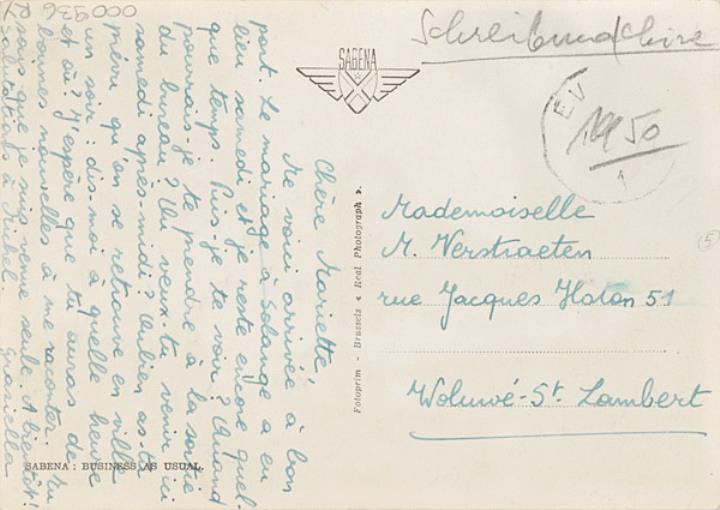 000936
Chère Mariette,
Me voici arrivée à bon
port. Le mariage à Solange a eu
lieu samedi et je reste encore quel-
que temps. Puis-je te voir ? Quand
pourrais-je te prendre à la sortie
du bureau ? Ou veux-tu venir ici
samedi après-midi ? Ou bien as-tu
prévu qu'on se retrouve en ville
un soir : dis-moi à quelle heure
et où ? J'espère que tu auras de
bonnes nouvelles à me raconter. Tu
sais que je suis venue seule. A bientôt !
Salutations à
Graziella
SABENA : BUSINESS AS USUAL.
SABENA
Fotoprim - Brussels « Real Photograph ».
EV
1950
Mademoiselle
M. Verstraeten
rue Jacques Hoton 51
Woluwé-St. Lambert
5